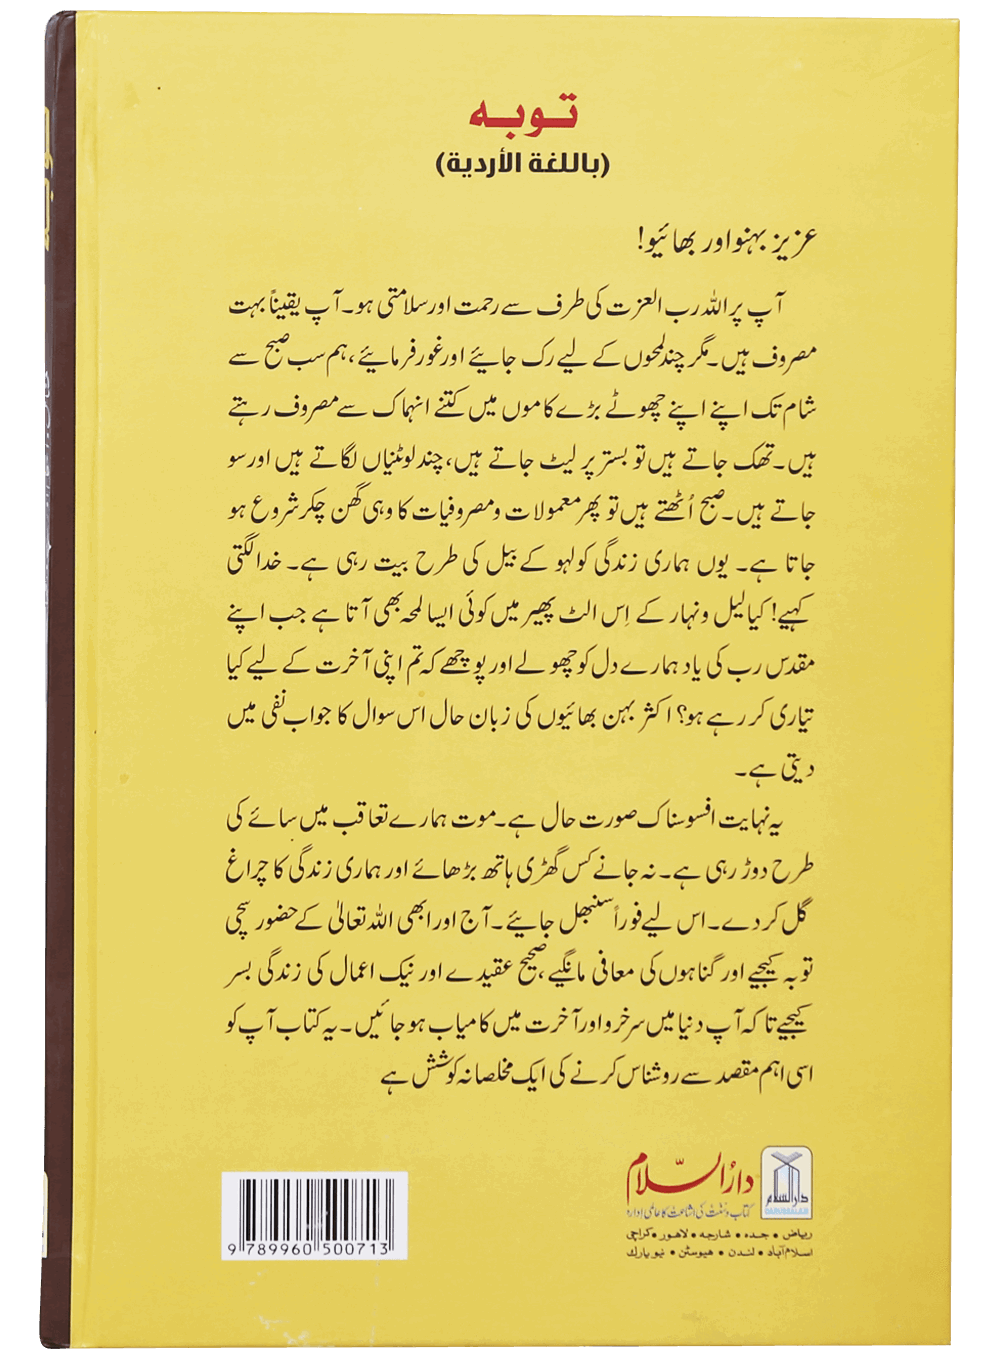 توبه
(باللغة الأردية)
عزیز بہنو اور بھائیو!
آپ پر اللہ رب العزت کی طرف سے رحمت اور سلامتی ہو۔ آپ یقیناً بہت
مصروف ہیں۔ مگر چند لمحوں کے لیے رک جائیے اور غور فرمائیے، ہم سب صبح سے
شام تک اپنے اپنے چھوٹے بڑے کاموں میں کتنے انہماک سے مصروف رہتے
ہیں۔ تھک جاتے ہیں تو بستر پر لیٹ جاتے ہیں، چند لوٹنیاں لگاتے ہیں اور سو
جاتے ہیں۔ صبح اُٹھتے ہیں تو پھر معمولات و مصروفیات کا وہی گھن چکر شروع ہو
جاتا ہے۔ یوں ہماری زندگی کولہو کے بیل کی طرح بیت رہی ہے۔ خدا لگتی
کہیے! کیا لیل و نہار کے اِس الٹ پھیر میں کوئی ایسا لمحہ بھی آتا ہے جب اپنے
مقدس رب کی یاد ہمارے دل کو چھولے اور پوچھے کہ تم اپنی آخرت کے لیے کیا
تیاری کر رہے ہو؟ اکثر بہن بھائیوں کی زبان حال اس سوال کا جواب نفی میں
دیتی ہے۔
یہ نہایت افسوسناک صورت حال ہے۔ موت ہمارے تعاقب میں سائے کی
طرح دوڑ رہی ہے۔ نہ جانے کس گھڑی ہاتھ بڑھائے اور ہماری زندگی کا چراغ
گل کر دے۔ اس لیے فوراً سنبھل جائیے۔ آج اور ابھی اللہ تعالیٰ کے حضور سچی
توبہ کیجیے اور گناہوں کی معافی مانگیے، صحیح عقیدے اور نیک اعمال کی زندگی بسر
کیجیے تا کہ آپ دنیا میں سرخرو اور آخرت میں کامیاب ہو جائیں۔ یہ کتاب آپ کو
اسی اہم مقصد سے روشناس کرنے کی ایک مخلصانہ کوشش ہے
دارُالسّلام
دارالسلام
DARUSSALAM
کتاب و سنت کی اشاعت کا عالمی ادارہ
ریاض • جدہ • شارجہ • لاهور • کراچی
اسلام آباد • لندن • هیوسٹن • نیو یارک
9 789960 500713
توبہ